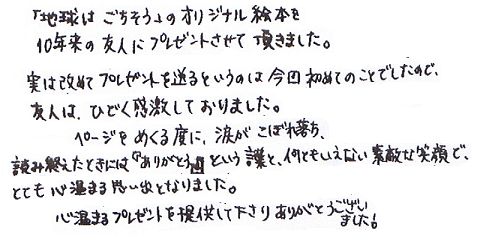 「地球は ごちそう」の オリジナル絵本を
10年来の 友人に プレゼントさせて 頂きました。
実は改めて プレゼントを送るというのは 今回 初めてのことでしたので、
友人は、ひどく感激しておりました。
ページを めくる度に、涙が こぼれ落ち、
読み終えたときには『ありがとう』という 言葉と、何ともいえない 素敵な笑顔で、
とても 心温まる 思い出となりました。
心温まる プレゼントを 提供して下さり ありがとうござい
ました!